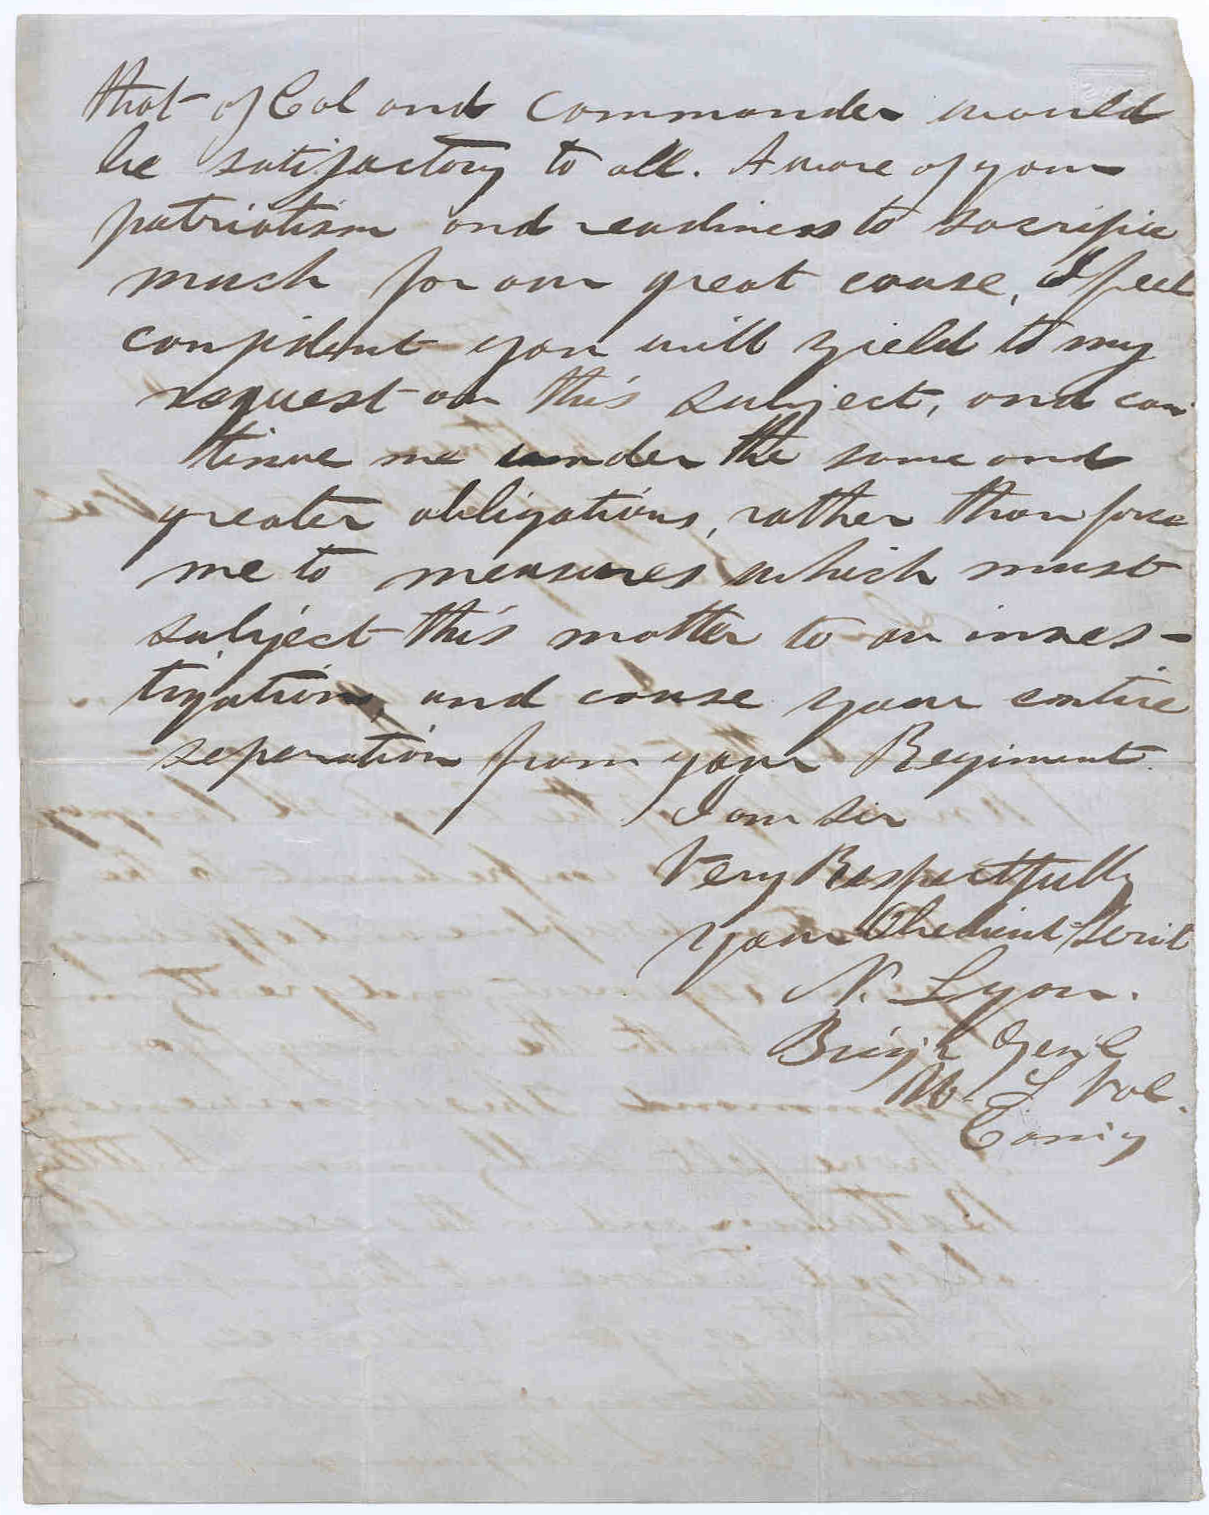 that of Col and Commander would
be satisfactory to all. Aware of your
patriotism and readiness to sacrifice
much for our great cause, I feel
confident you will yield to my
request on this subject, and con-
tinue me under the same and
greater obligations, rather than force
me to measures which must
subject this matter to an inves-
tigation, and cause your entire
separation from your Regiment.
I am sir
Very Respectfully
Your Obedient Servt
N. Lyon.
Brig'r Gen'l
Vol.
Com'g